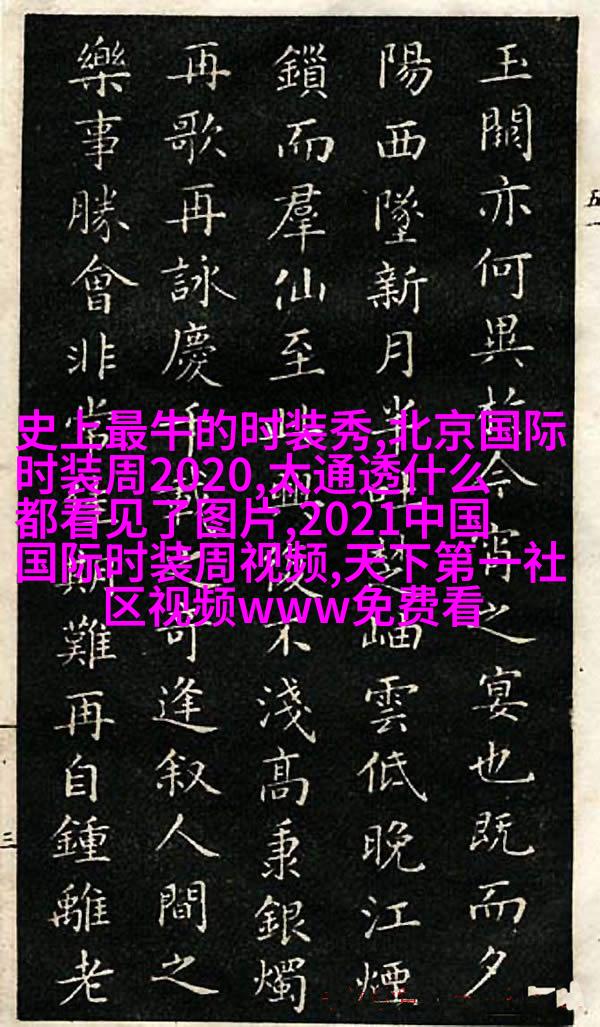 玉闕亦何異於今宵之宴也既而夕
陽西墜新月半楚岫雲低晚江煙
鎖而羣仙至興不淺高秉銀燭
再歌再詠慶千載之奇逢叙人間之
樂事勝會非常期難再自鍾離老
史上最牛的时装秀,北京国际
时装周2020,太通透什么
都看见了图片,2021中国
国际时装周视频,天下第一社
区视频www免费看
五一
三